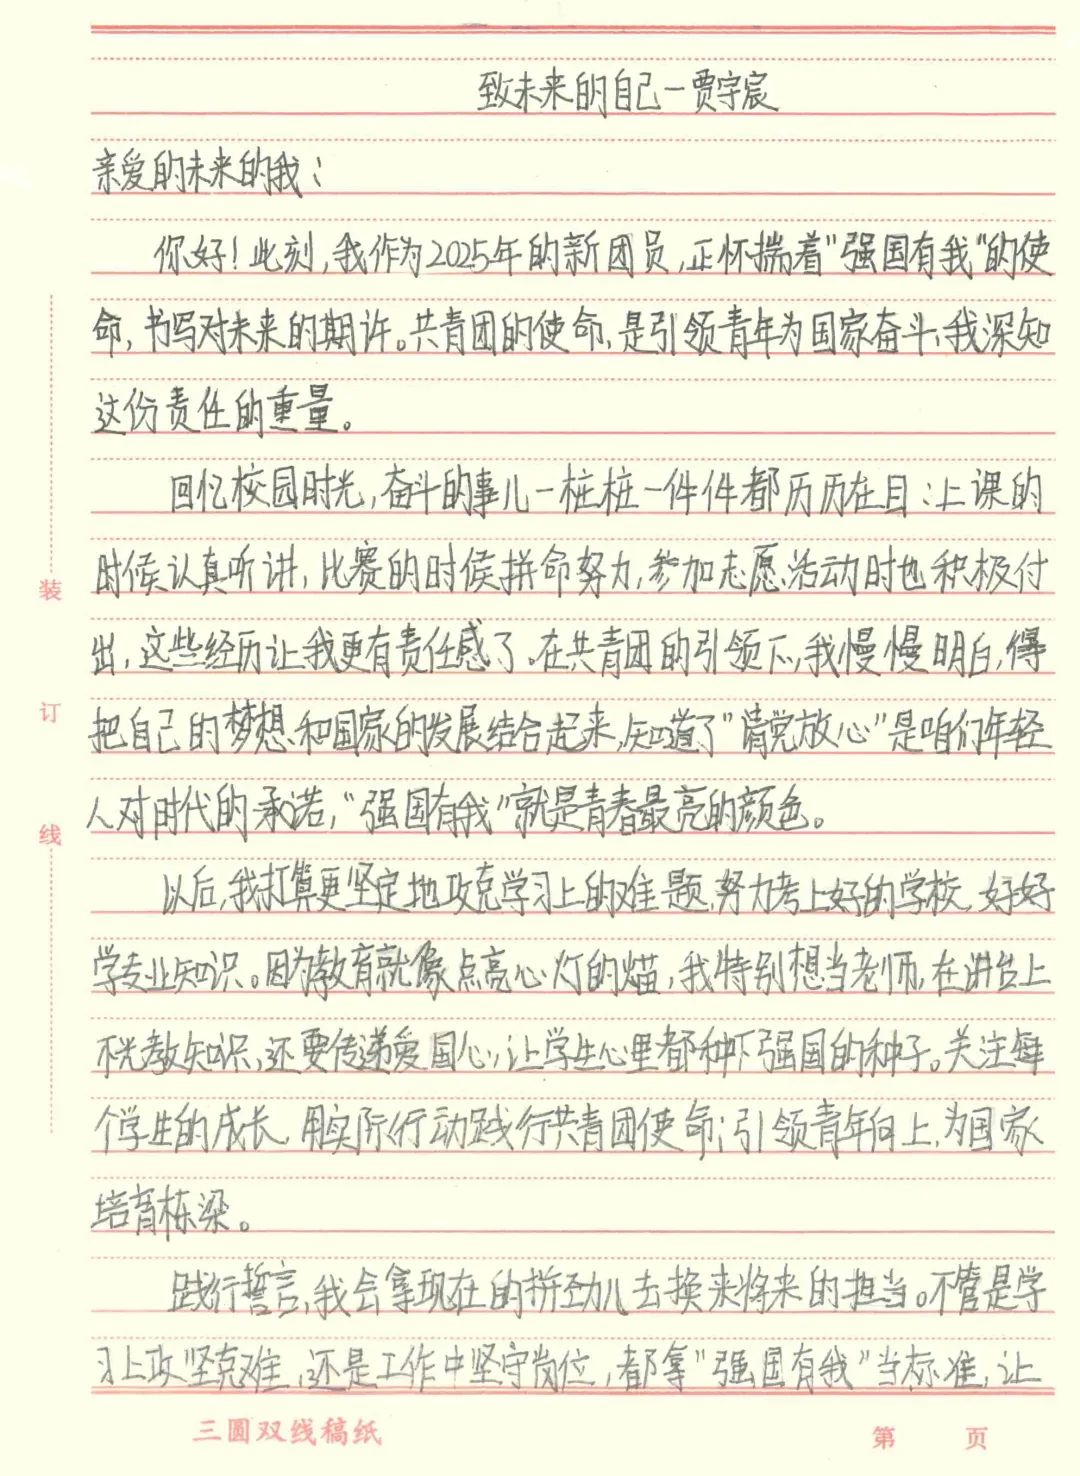 致未来的自己—贾宇宸
亲爱的未来的我：
你好！此刻，我作为2025年的新团员，正怀揣着“强国有我”的使
命，书写对未来的期许。共青团的使命，是引领青年为国家奋斗，我深知
这份责任的重量。
回忆校园时光，奋斗的事儿一桩桩一件件都历历在目：上课的
时候认真听讲，比赛的时候拼命努力，参加志愿活动时也积极付
出，这些经历让我更有责任感了。在共青团的引领下，我慢慢明白，得
把自己的梦想和国家的发展结合起来，知道了“请党放心”是咱们年轻
人对时代的承诺，“强国有我”就是青春最亮的颜色。
以后，我打算更坚定地攻克学习上的难题，努力考上好的学校，好好
学专业知识。因为教育就像点亮心灯的，我特别想当老师，在讲台上
不光教知识，还要传递爱国心，让学生心里都种下强国的种子。关注每
个学生的成长，用实际行动践行共青团使命；引领青年向上，为国家
培育栋梁。
践行誓言，我会拿现在的拼劲儿去换来将来的担当。不管是学
习上攻坚克难，还是工作中坚守岗位，都拿“强国有我”当标准，让
装
订
线
三圆双线稿纸
第 页